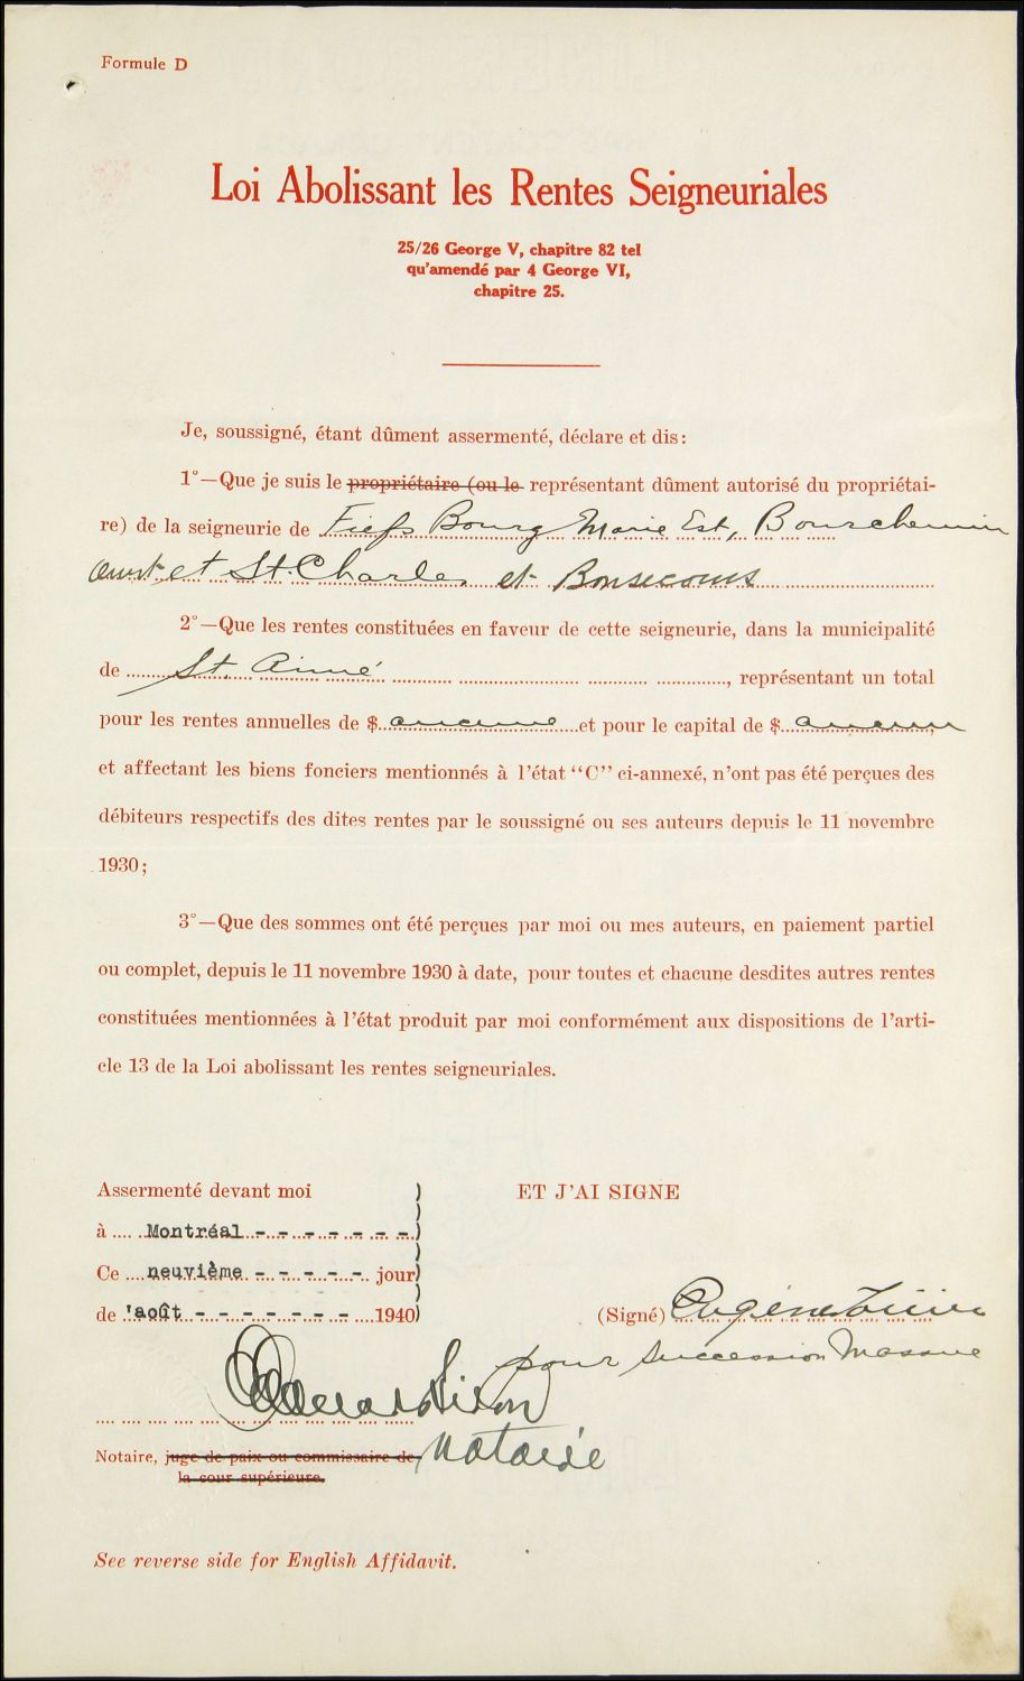 Formule D
Loi Abolissant les Rentes Seigneuriales
25/26 George V, chapitre 82 tel
qu'amendé par 4 George VI,
chapitre 25.
Je, soussigné, étant dûment assermenté, déclare et dis:
1°—Que je suis le propriétaire (ou le représentant dûment autorisé du propriétai-
re) de la seigneurie de Fiefs Bourg Marie Est, Bourchemin
ouest et St. Charles et Bonsecours
2°—Que les rentes constituées en faveur de cette seigneurie, dans la municipalité
de St. Aimé, représentant un total
pour les rentes annuelles de $ aucune et pour le capital de $ aucun
et affectant les biens fonciers mentionnés à l'état "C" ci-annexé, n'ont pas été perçues des
débiteurs respectifs des dites rentes par le soussigné ou ses auteurs depuis le 11 novembre
1930;
3°—Que des sommes ont été perçues par moi ou mes auteurs, en paiement partiel
ou complet, depuis le 11 novembre 1930 à date, pour toutes et chacune desdites autres rentes
constituées mentionnées à l'état produit par moi conformément aux dispositions de l'arti-
cle 13 de la Loi abolissant les rentes seigneuriales.
Assermenté devant moi
ET J'AI SIGNE
à Montréal - - - - - - -)
Ce neuvième - - - - - jour)
de 'août - - - - - - - 1940)
(Signé) Eugène
pour Succession Massue
Notaire, juge de paix ou commissaire de Notaire
la cour supérieure.
See reverse side for English Affidavit.